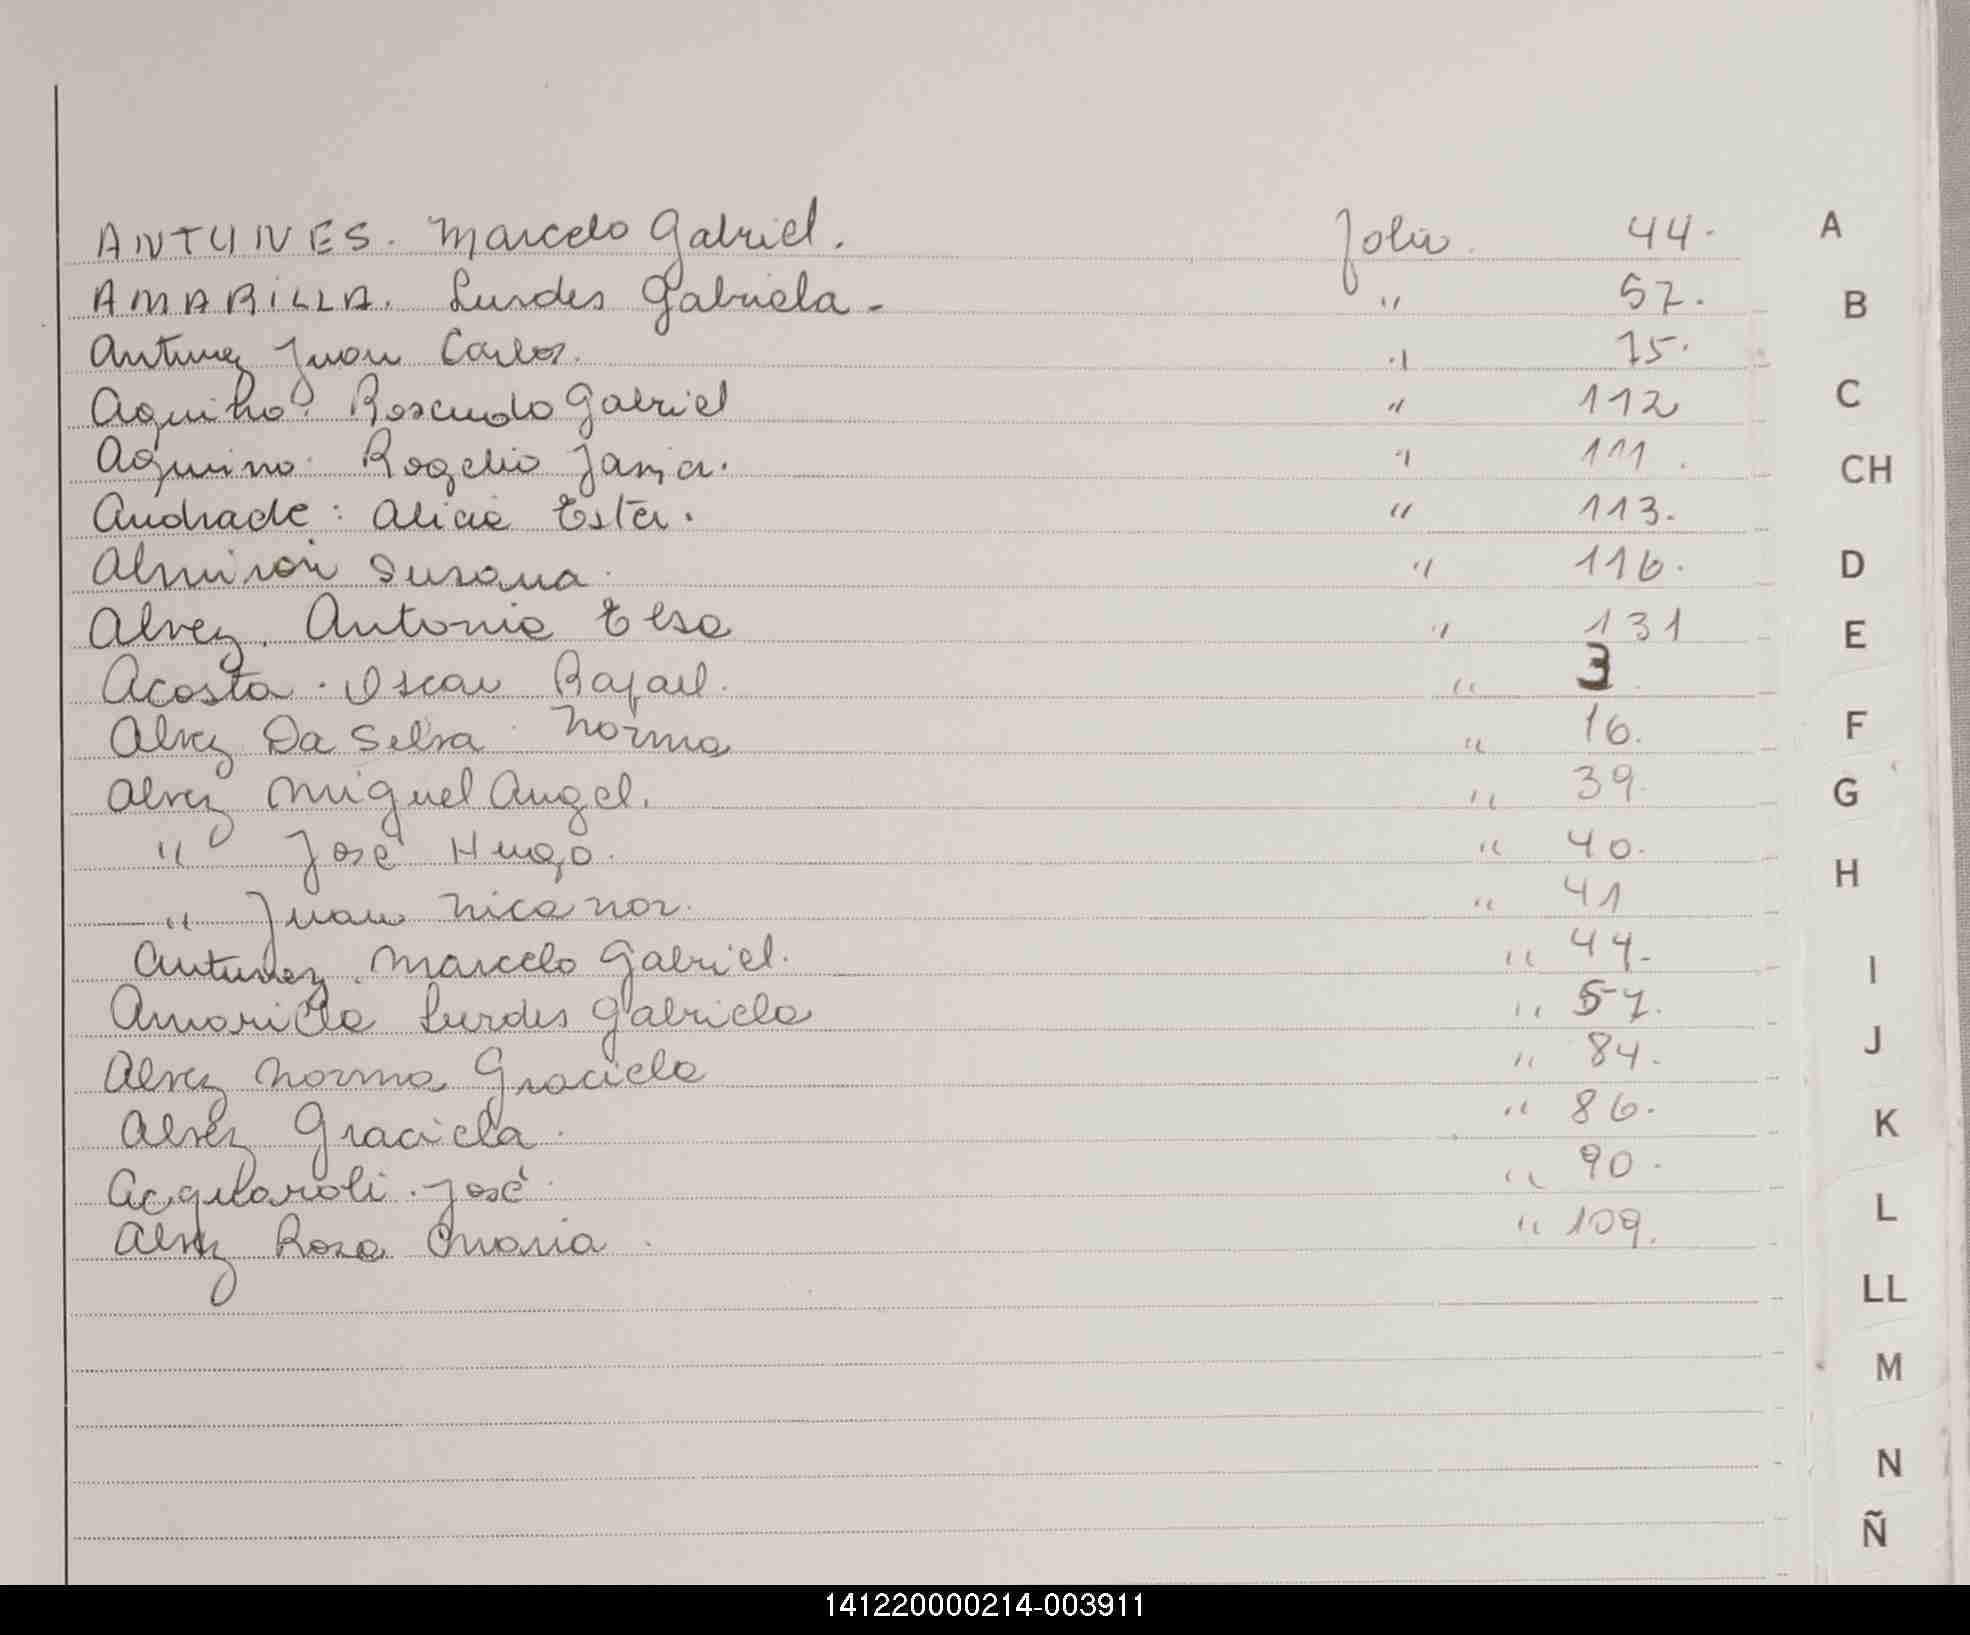 ANTUNES. Marcelo Gabriel. folio. 44.
AMARILLA. Lurdes Gabriela - " 57.
Antunez Juan Carlos. " 75.
Aquino. Rosendo Gabriel " 112
Aquino. Rogelio " 111.
Andrade: Alicia Ester. " 113.
Almirón Susana. " 116.
Alvez. Antonia Elsa " 131
Acosta. Oscar Rafael. " 3.
Alvez Da Selva. Norma " 16.
Alvez Miguel Angel. " 39.
" José Hugo. " 40.
" Juan Nicanor. " 41
Antunez. Marcelo Gabriel. " 44.
Amarilla Lurdes Gabriela " 57.
Alvez Norma Graciela " 84.
Alvez Graciela. " 86.
Acquaroli. José. " 90.
Alvez Rosa Maria. " 109.
A
B
C
CH
D
E
F
G
H
I
J
K
L
LL
M
N
Ñ
141220000214-003911